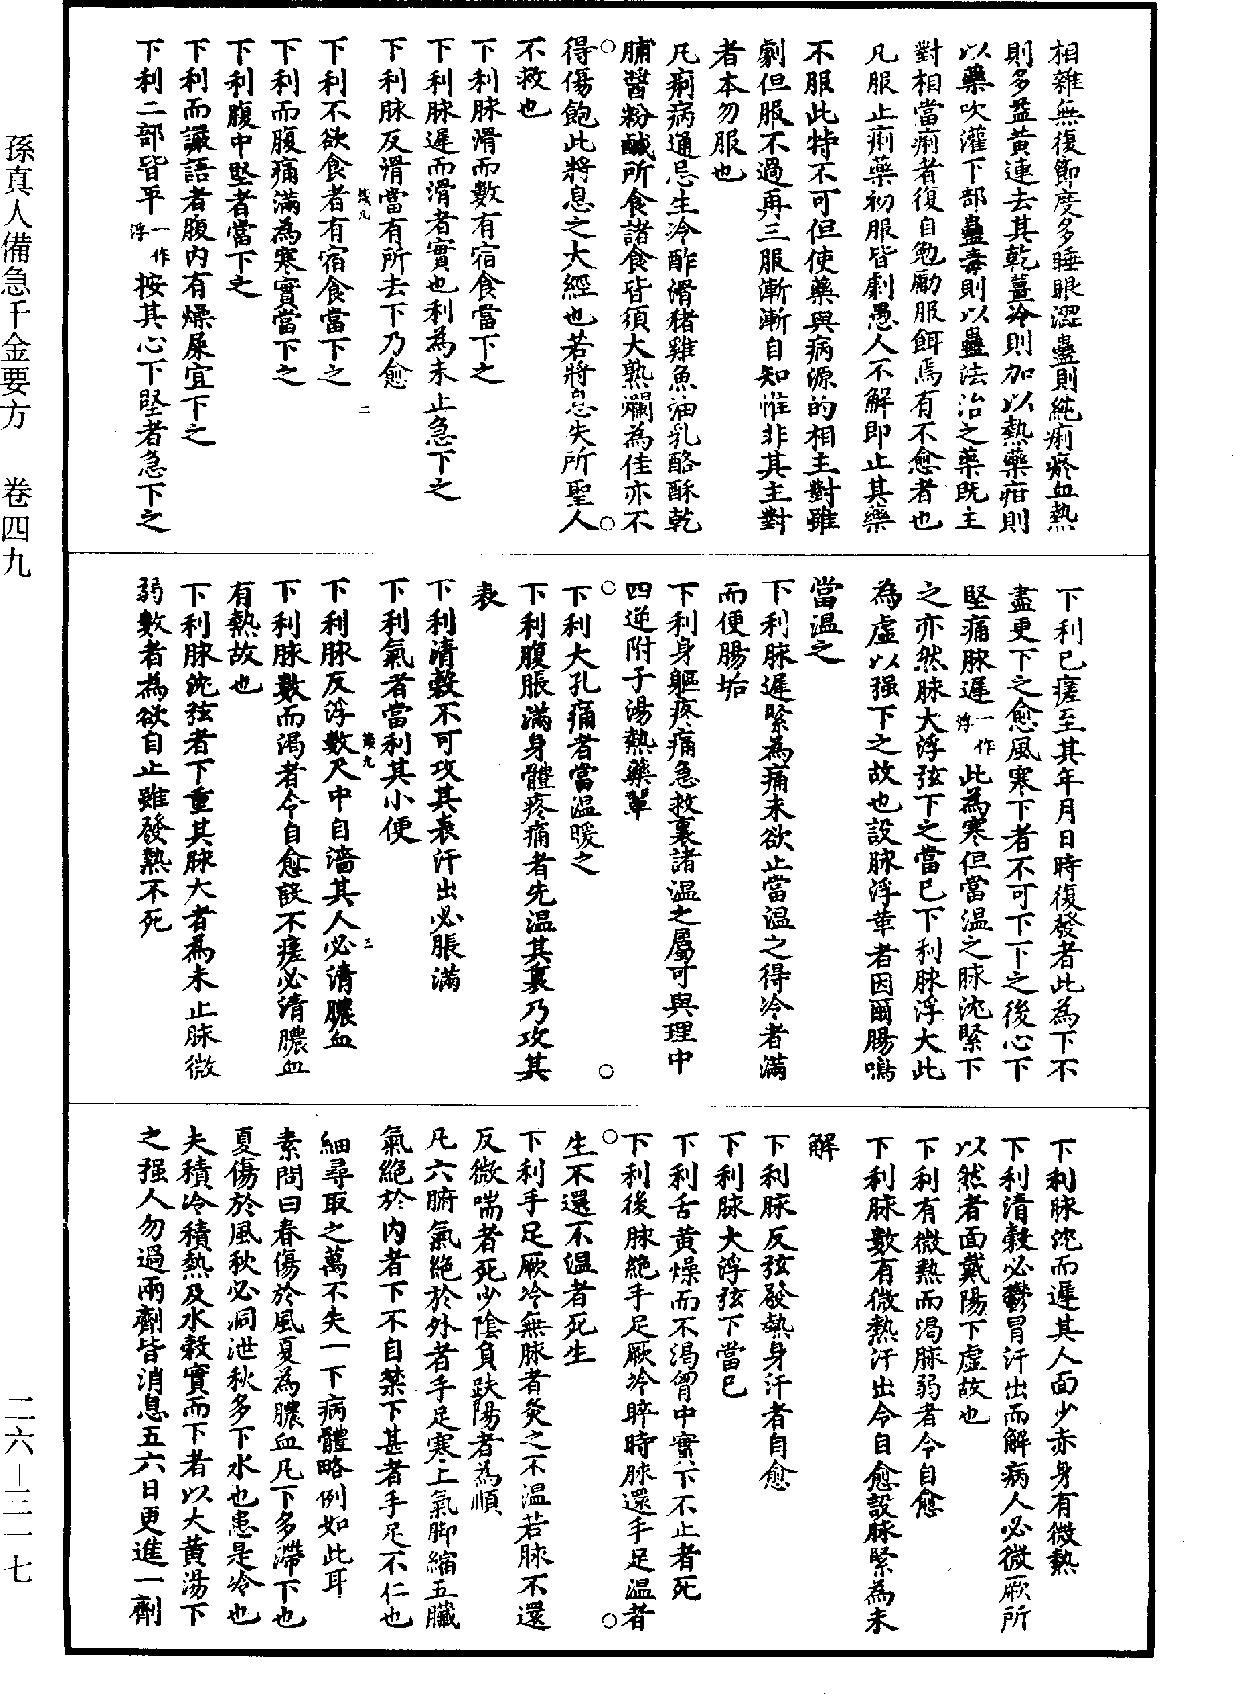 相雜無復節度多睡眼澀蠱則純痢瘀血熱
則多益黃連去其乾薑冷則加以熱藥疳則
以藥吹灌下部蠱毒則以蠱法治之藥既主
對相當痢者復自勉勵服餌焉有不愈者也
凡服止痢藥初服皆劇愚人不解即止其藥
不服此特不可但使藥與病源的相主對雖
劇但服不過再三服漸漸自知惟非其主對
者本勿服也
凡痢病通忌生冷酢滑猪雞魚油乳酪酥乾
脯醬粉鹹所食諸食皆須大熟爛為佳亦不
得傷飽此將息之大經也若將息失所聖人
不救也
下利脉滑而數有宿食當下之
下利脉遲而滑者實也利為未止急下之
下利脉反滑當有所去下乃愈
下利不欲食者有宿食當下之
下利而腹痛滿為寒實當下之
下利腹中堅者當下之
下利而讝語者腹内有燥屎宜下之
下利三部皆平一作浮按其心下堅者急下之
下利已瘥至其年月日時復發者此為下不
盡更下之愈風寒下者不可下下之後心下
堅痛脉遲一作浮此為寒但當溫之脉沈緊下
之亦然脉大浮弦下之當已下利脉浮大此
為虛以强下之故也設脉浮革者因爾腸鳴
當溫之
下利脉遲緊為痛未欲止當溫之得冷者滿
而便腸垢
下利身軀疼痛急救裏諸溫之屬可與理中
四逆附子湯熱藥輩
下利大孔痛者當溫暖之
下利腹脹滿身體疼痛者先溫其裏乃攻其
表
下利清穀不可攻其表汗出必脹滿
下利氣者當利其小便
下利脉反浮數尺中自濇其人必清膿血
下利脉數而渴者令自愈設不瘥必清膿血
有熱故也
下利脉沈弦者下重其脉大者為未止脉微
弱數者為欲自止雖發熱不死
下利脉沈而遲其人面少赤身有微熱
下利清穀必鬱冒汗出而解病人必微厥所
以然者面戴陽下虛故也
下利有微熱而渴脉弱者令自愈
下利脉數有微熱汗出令自愈設脉緊為未
解
下利脉反弦發熱身汗者自愈
下利脉大浮弦下當已
下利舌黃燥而不渴胷中實下不止者死
下利後脉絶手足厥冷晬時脉還手足溫者
生不還不溫者死生
下利手足厥冷無脉者灸之不溫若脉不還
反微喘者死少陰負趺陽者為順
凡六腑氣絶於外者手足寒上氣脚縮五臟
氣絶於内者下不自禁下甚者手足不仁也
細尋取之萬不失一下病體略例如此耳
素問曰春傷於風夏為膿血凡下多滯下也
夏傷於風秋必洞泄秋多下水也患是冷也
夫積冷積熱及水穀實而下者以大黃湯下
之强人勿過兩劑皆消息五六日更進一劑
孫真人備急千金要方　卷四九
二六－三一七